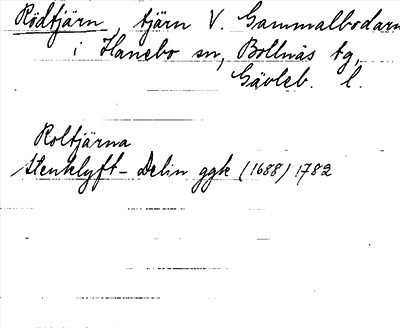 Rödtjärn, tjärn V. Gammalbodarn
i Hanebo sn, Bollnäs tg,
Gävleb. l.
Roltjärna
Stenklyft - Delin ggk (1688) 1782